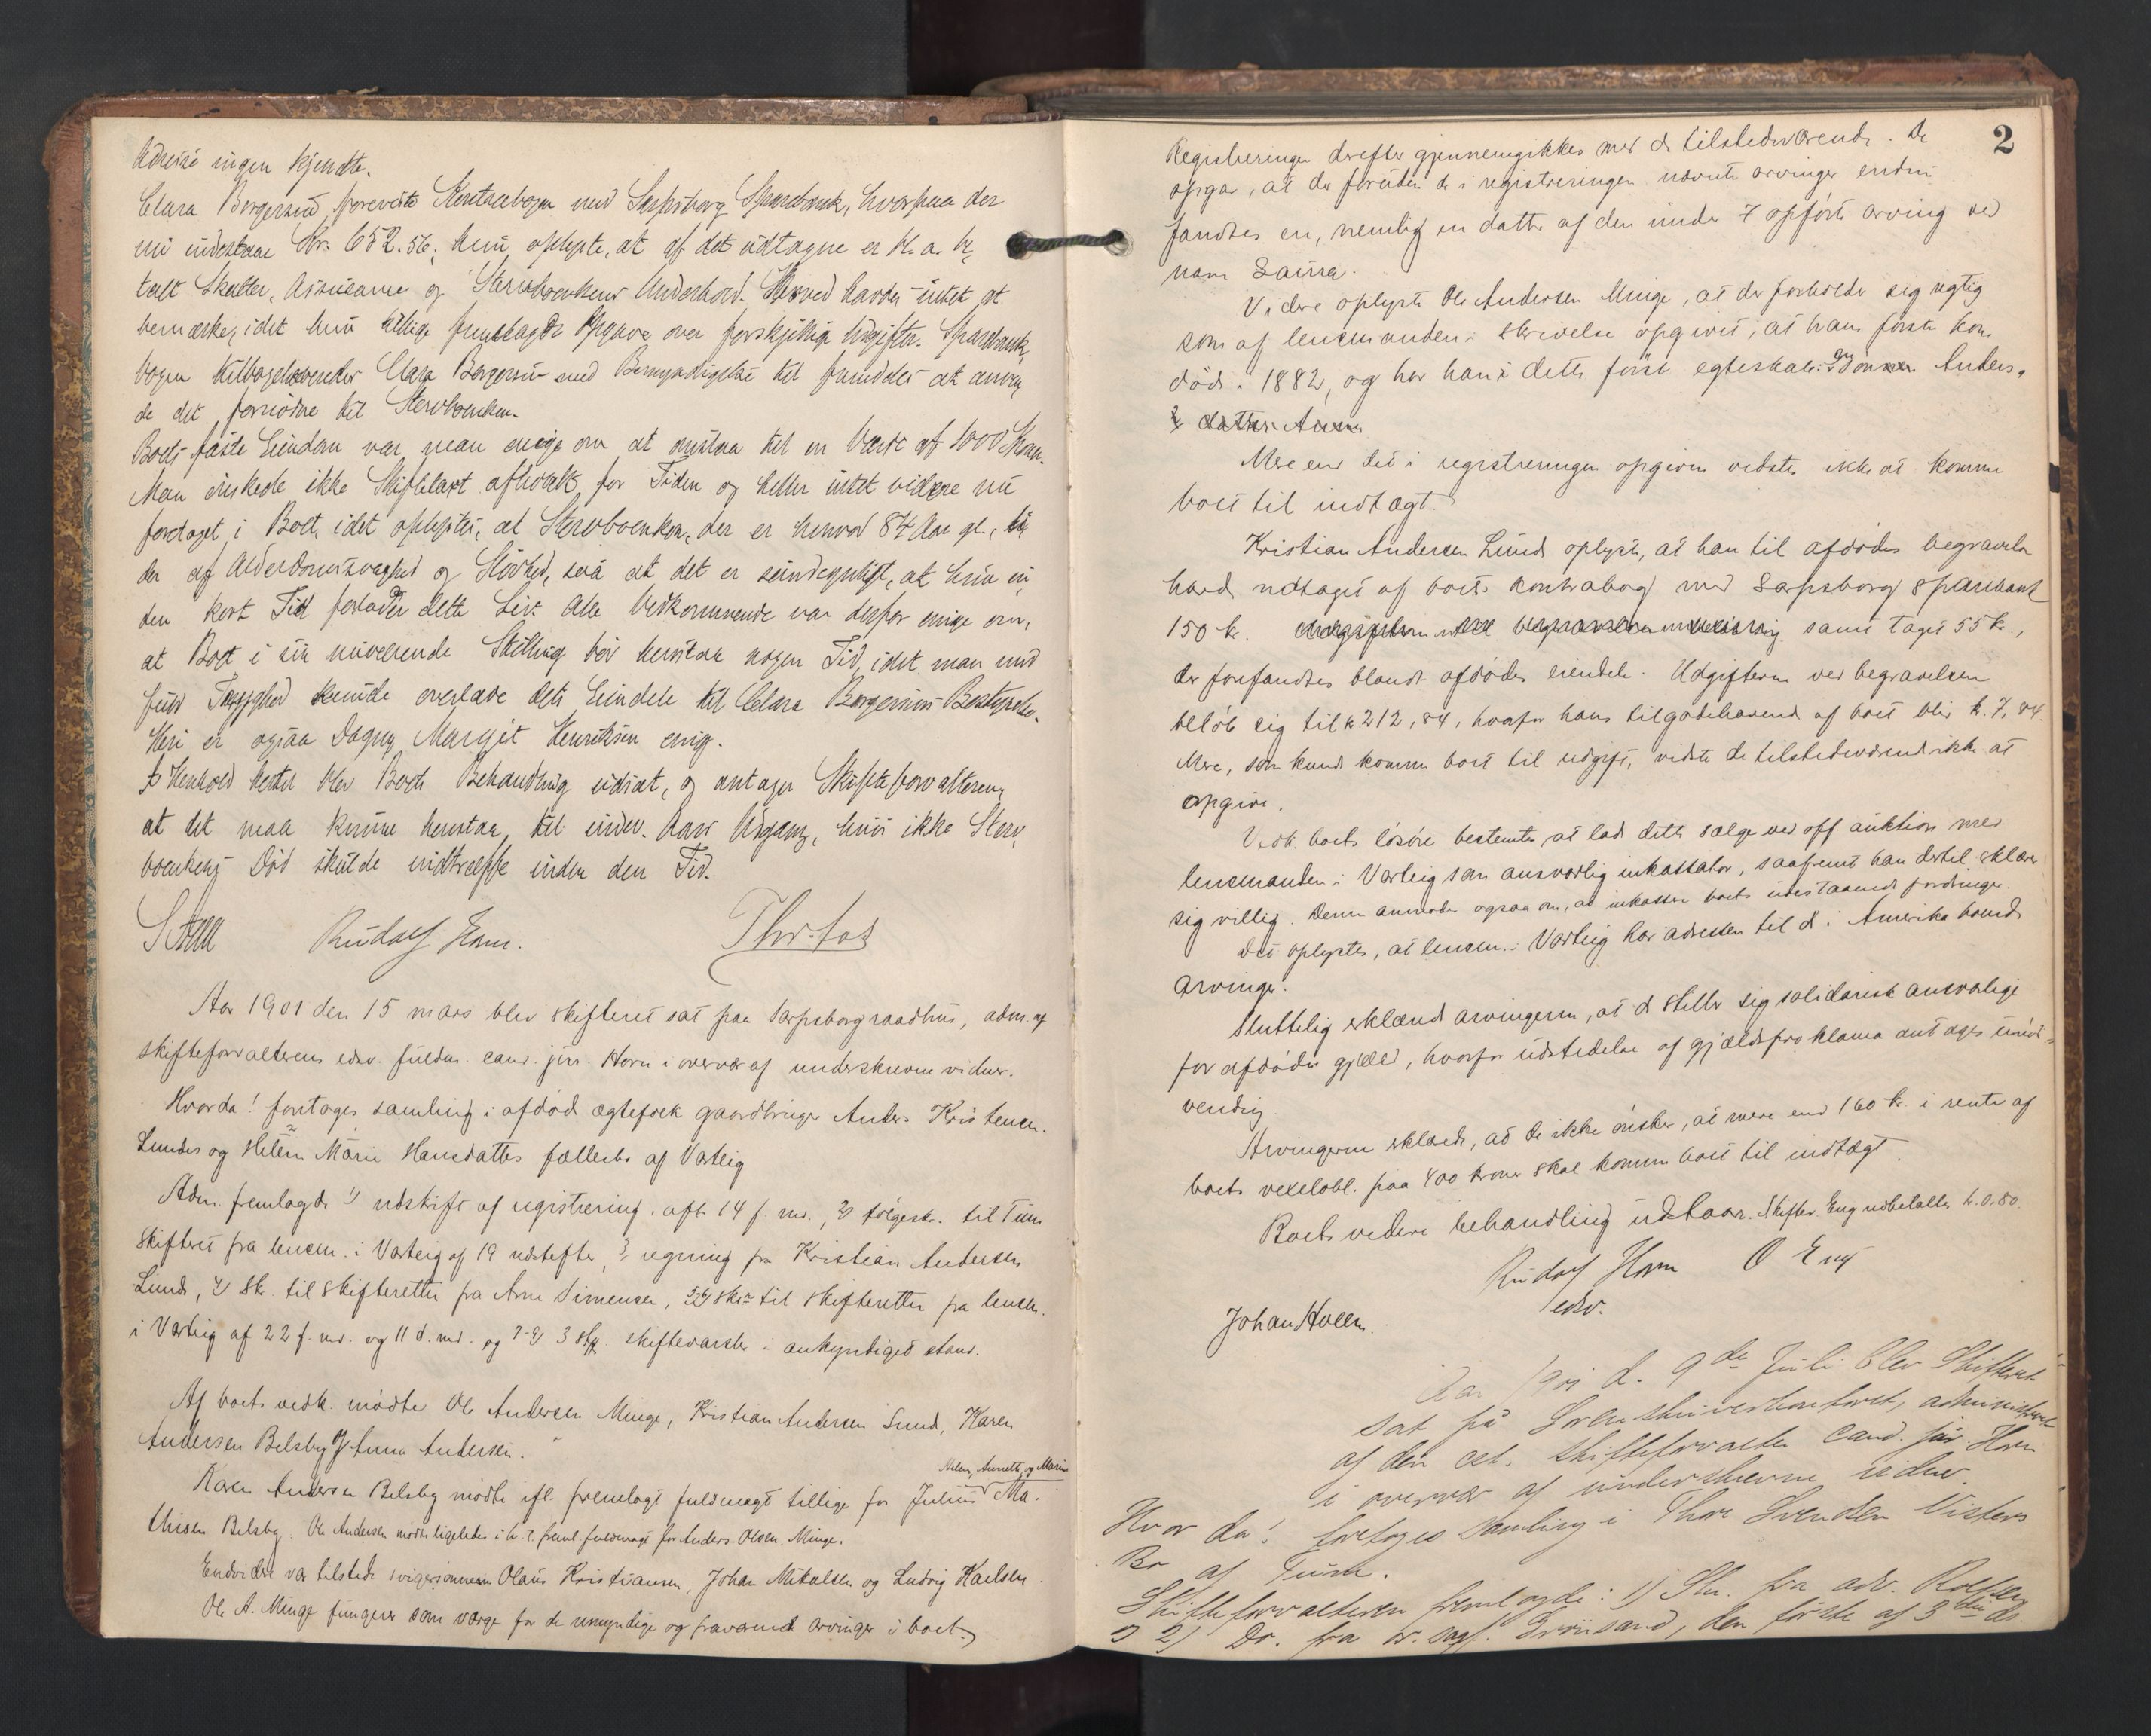 Adresse ingen kjendte.
Clara Borgersen foreviste Kontrabogen med Sarpsborg Sparebank, hvorpaa der
nu indestaar Kr. 652.56; hun oplyste, at af det udtagne er bl. a. be-
talt Skatter, Assurance og Stervboenkens Underhold. Herved havdes intet at
bemærke, idet hun tillige fremlagde Opgave over forskjellige Udgifter. Sparebank-
bogen tilbageleveredes Clara Borgersen med Bemyndigelse til fremdeles at anven-
de det fornødne til Stervboenken.
Boets faste Eiendom var man enige om at ansætte til en Værdi af 1000 Kroner.
Man ønskede ikke Skiftetaxt afholdt for Tiden og heller intet videre nu
foretaget i Boet, idet oplystes, at Stervboenken, der er henved 84 Aar gl., li-
der af Alderdomssvaghed og Sløvhed, saa at det er sandsynligt, at hun in-
den kort Tid forlader dette Liv. Alle Vedkommende var derfor enige om,
at Boet i sin nuværende Stilling bør henstaa nogen Tid, idet man med
fuld Tryghed kunde overlade dets Eiendele til Clara Borgersens Bestyrelse.
Heri er ogsaa Dagny Margit Henriksen enig.
I Henhold hertil blev Boets Behandling udsat, og antager Skifteforvalteren,
at det maa kunne henstaa til indev. Aars Udgang, hvis ikke Sterv-
boenkens Død skulde indtræffe inden den Tid.
Rudolf Horn. Thr. Fos
Aar 1901 den 15 mars blev skifteret sat paa Sarpsborg raadhus, adm. af
skifteforvalterens edsv. fuldm. cand. jur. Horn i overvær af underskrevne vidner.
Hvorda! foretoges samling i afdød ægtefolk gaardbruger Anders Kristensen
Lundes og Helene Marie Hansdatters fællesbo af Varteig
Adm. fremlagde 1) udskrift af registrering afh. 14 f. md., 2) følgeskr. til Tune
skifteret fra lensm. i Varteig af 19 udstefter, 3) regning fra Kristian Andersen
Lund, 4) Sk. til skifteretten fra Arne Simensen, 5-6) skr. til skifteretten fra lensm.
i Varteig af 22 f. md. og 11 d. md. og 7-9) 3 stk. skiftevarsler i ankyndiget stand.
Af boets vedk. mødte Ole Andersen Minge, Kristian Andersen Lund, Karen
Andersen Belsby og Anna Andersen.
Helen, Annette og Marie
Karen Andersen Belsby mødte ifl. fremlagt fuldmagt tillige for Julius Ma-
thisen Belsby. Ole Andersen mødte ligeledes i h. t. freml. fuldmagt for Anders Olsen Minge.
Endvidere var tilstede svigersønnerne Olaus Kristiansen, Johan Mikalsen og Ludvig Karlsen.
Ole A. Minge fungerer som værge for de umyndige og fraværende arvinger i boet.
2
Registreringen derefter gjennemgikkes med de tilstedeværende. De
opgav, at der foruden de i registreringen nævnte arvinger endnu
fandtes en, nemlig en datter af den under 7 opførte arving ved
navn Laura.
Videre oplyste Ole Andersen Minge, at det forholder sig rigtig
som af lensmanden i skrivelse opgivet, at hans første kone
døde i 1882, og har han i dette første egteskab: en søn Anders.
& datter Anna
Mere end det i registreringen opgivne vidstes ikke at komme
boet til indtægt.
Kristian Andersen Lund oplyste, at han til afdødes begravelse
havde udtaget af boets kontrabog med Sarpsborg sparebank
150 kr. samt taget 55 kr.,
der forefandtes blandt afdødes eiendele. Udgifterne ved begravelsen
beløb sig til kr 212,84, hvorfor hans tilgodehavende af boet blir kr. 7,84.
Mere, som kunde komme boet til udgift, vidste de tilstedeværende ikke at
opgive.
Vedk. boets løsøre bestemtes at lade dette sælge ved off. auktion med
lensmanden i Varteig som ansvarlig inkassator, saafremt han dertil erklærer
sig villig. Denne anmodes ogsaa om, at inkassere boets udestaaende fordringer.
Det oplystes, at lensm. i Varteig har adressen til de i Amerika boende
arvinger.
Sluttelig erklærede arvingerne, at de stiller sig solidarisk ansvarlige
for afdødes gjæld, hvorfor udstedelse af gjældsproklama antages unød-
vendig.
Arvingerne erklærede, at de ikke ønsker, at mere end 160 kr. i rente af
boets vexelobl. paa 400 kroner skal komme boet til indtægt.
Boets videre behandling udstaar. Skiftev. Eng udbetaltes kr. 0.80.
Rudolf Horn O Eng
edsv.
Johan Holm.
Aar 1901 d. 9de Juli blev Skifteret
sat på Sorenskriverkontoret, administreret
af den cst. skifteforvalter cand. jur. Horn
i overvær af underskrevne vidner.
Hvor da! foretoges Samling i Thor Svendsen Visters
Bo af Tune.
Skifteforvalteren fremlagde: 1) Skr. fra adv.
2) Do. fra o.r.sagf. Grønsand, den første af 3die ds.